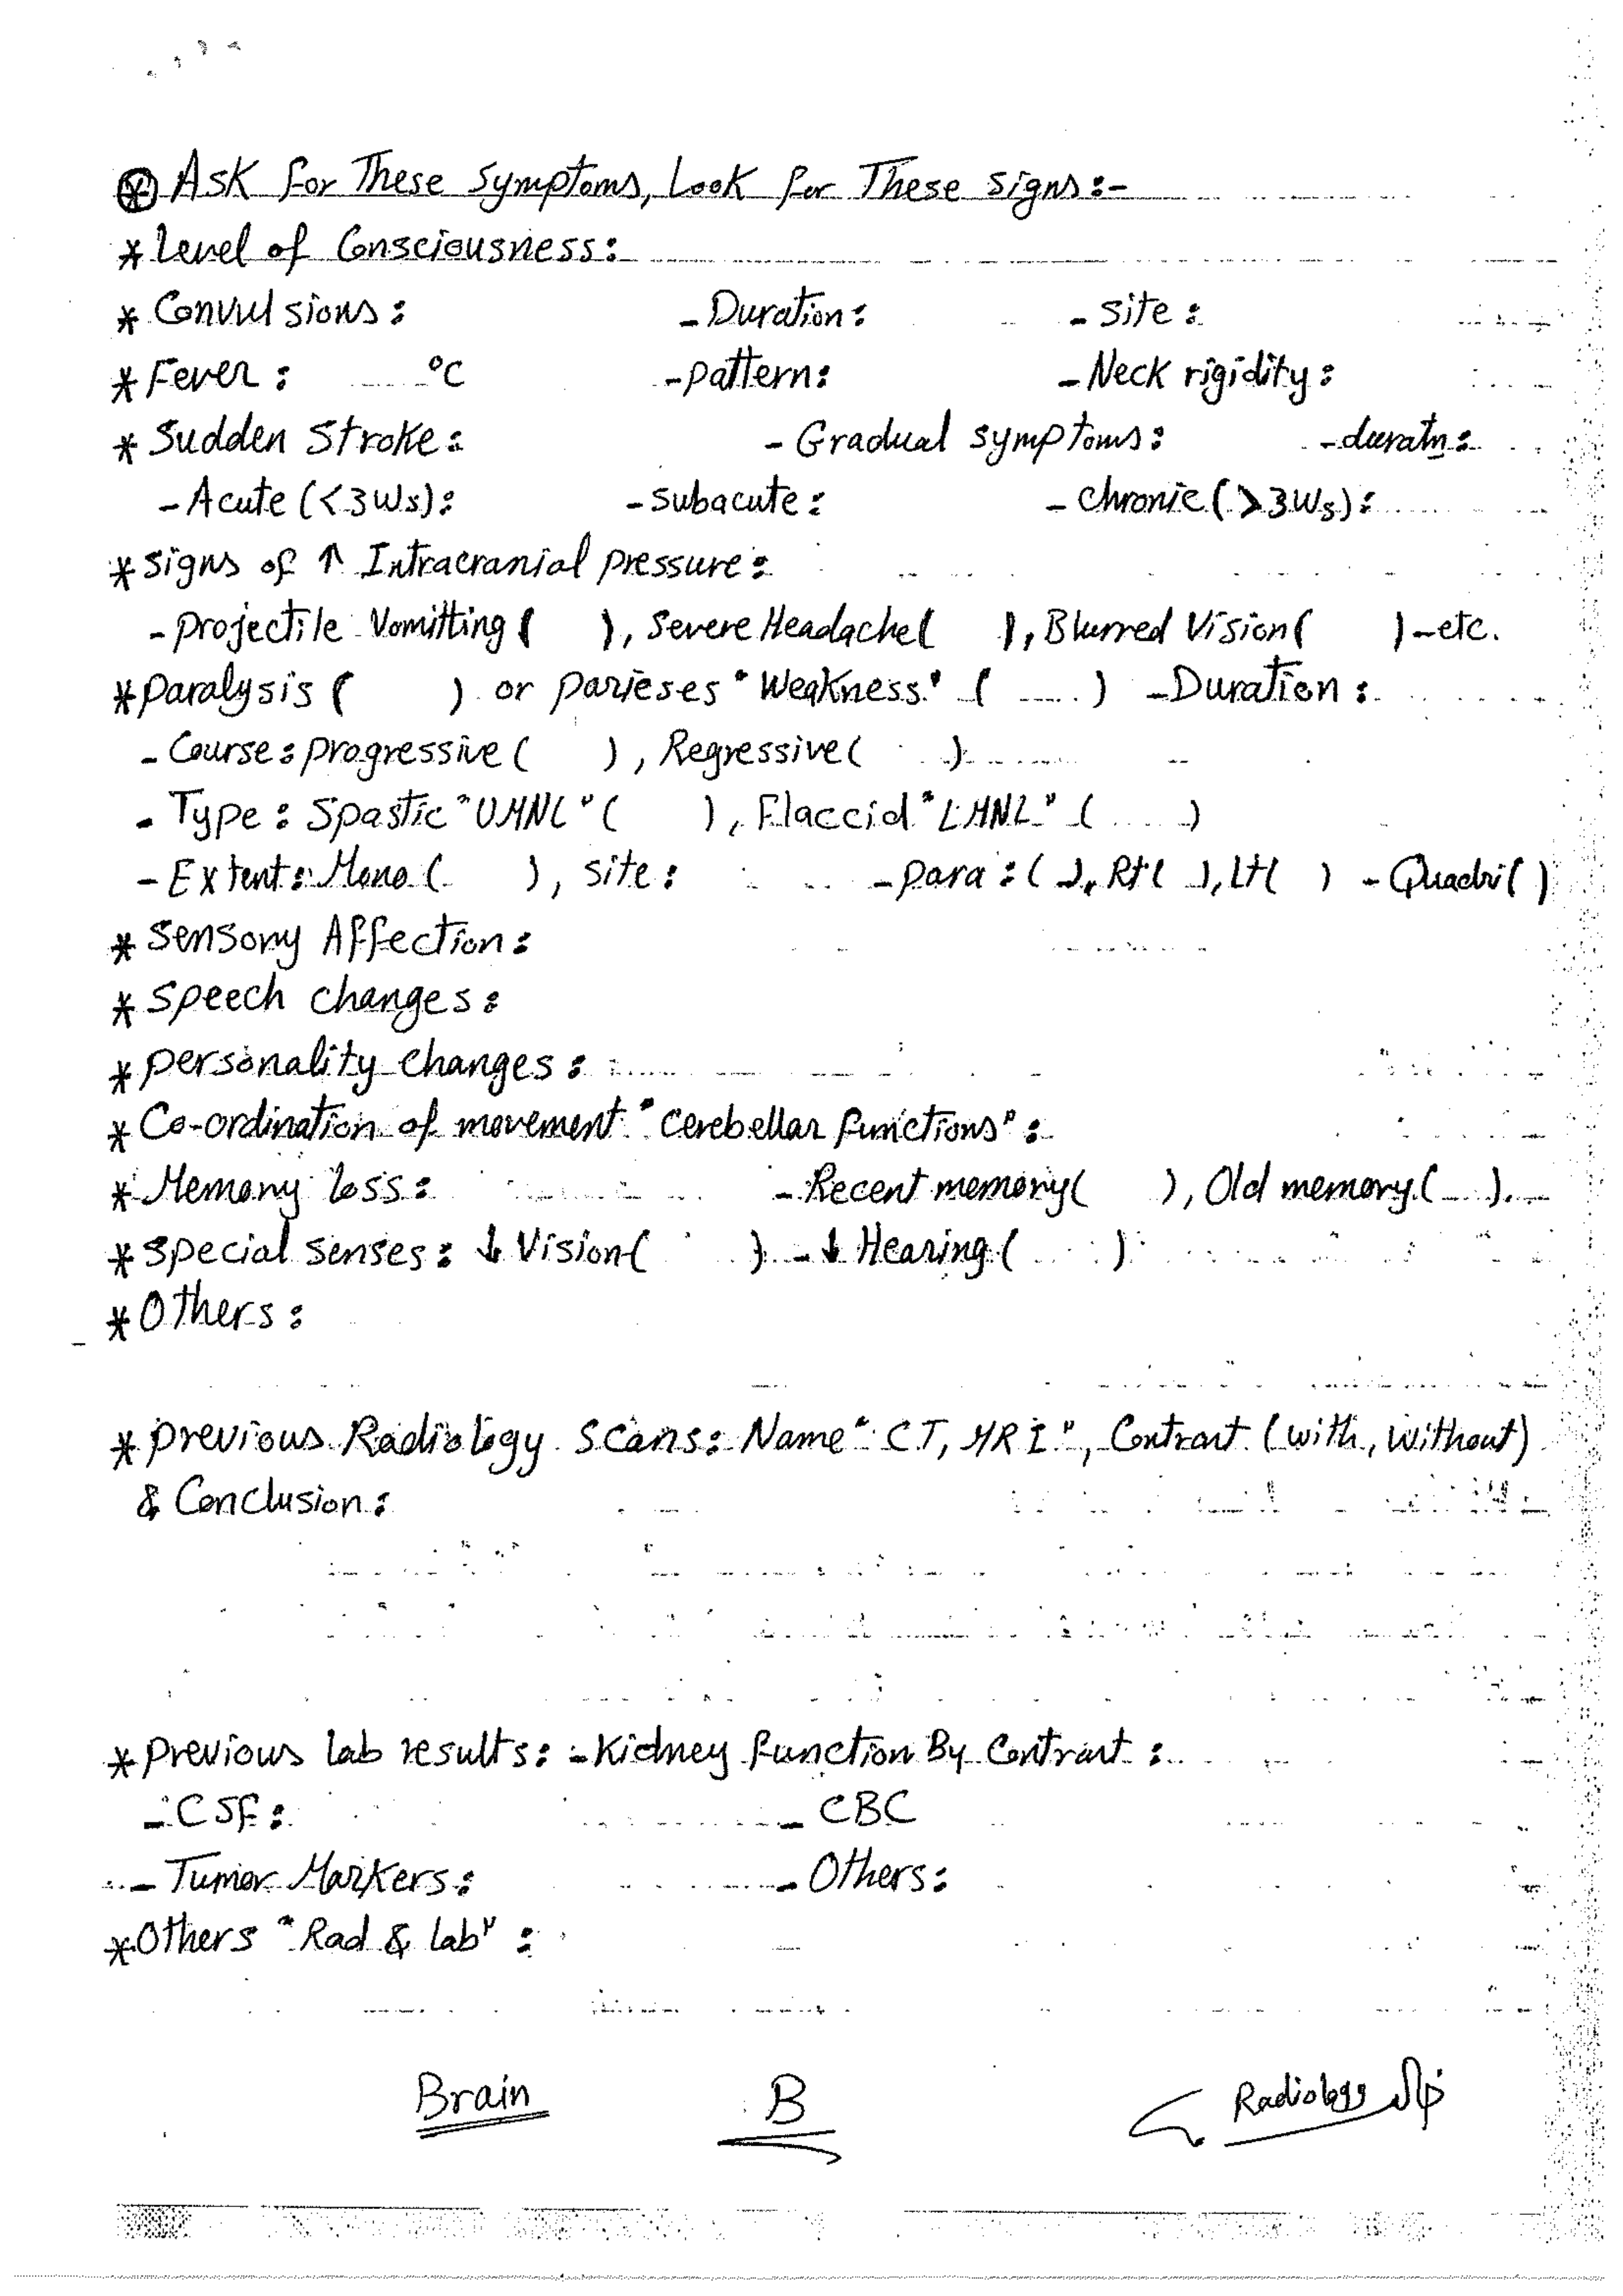 ⊛ Ask for These Symptoms, Look for These Signs:-
* Level of Consciousness:
* Convulsions: - Duration: - site:
* Fever: °C - pattern: - Neck rigidity:
* Sudden Stroke: - Gradual symptoms: - duratn:
- Acute (<3Ws): - subacute: - chronic (>3Ws):
* signs of ↑ Intracranial pressure:
- projectile Vomitting ( ), Severe Headache ( ), Blurred Vision ( ) - etc.
* paralysis ( ) or parieses "Weakness" ( ) - Duration:
- Course: progressive ( ), Regressive ( )
- Type: Spastic "UMNL" ( ), Flaccid "LMNL" ( )
- Extent: Mono ( ), site: - para: ( ), Rt ( ), Lt ( ) - Quadri ( )
* Sensory Affection:
* Speech changes:
* personality changes:
* Co-ordination of movement "Cerebellar functions":
* Memory loss: - Recent memory ( ), Old memory ( ).
* special senses: ↓ Vision ( ) - ↓ Hearing ( )
* Others:
* previous Radiology Scans: Name "CT, MRI", Contrast (with, without)
& Conclusion:
* previous lab results: - Kidney function By Contrast:
- CSF: - CBC
- Tumor Markers: - Others:
* Others "Rad & lab":
Brain B Radiology